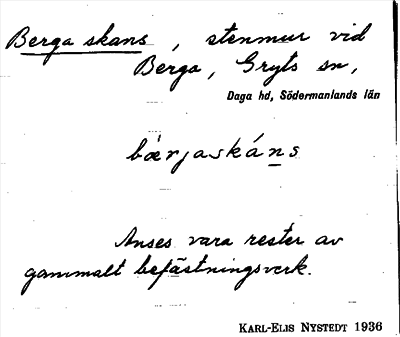 Berga skans, stenmur vid
Berga, Gryts sn,
Daga hd, Södermanlands län
bærjaskáns
Anses vara rester av
gammalt befästningsverk.
KARL-ELIS NYSTEDT 1936